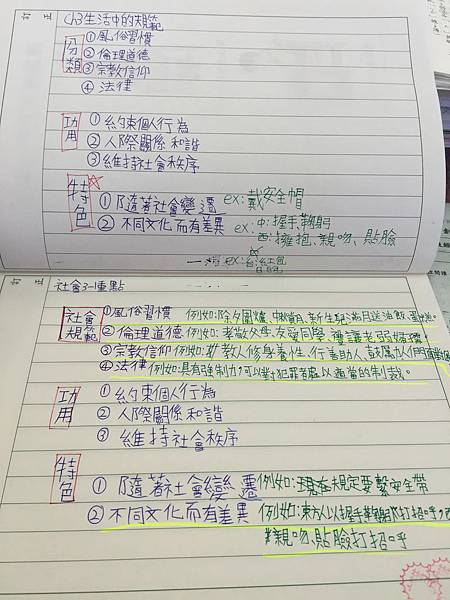 訂 正
ch3生活中的規範
分類
①風俗習慣
②倫理道德
③宗教信仰
④法律
功用
①約束個人行為
②人際關係和諧
③維持社會秩序
特色
①隨著社會變遷 ex:戴安全帽
②不同文化而有差異 ex:中:握手、鞠躬
西:擁抱、親吻、貼臉
ex:台:紅包
訂 正
社會3-1重點
社會規範
①風俗習慣 例如:除夕圍爐、中秋賞月、新生兒滿月送油飯
②倫理道德 例如:孝敬父母、友愛同學、禮讓老弱婦孺
③宗教信仰 例如:教人修身養性、行善助人
④法律 例如:具有強制力,可以對犯罪者處以適當的制裁。
功用
①約束個人行為
②人際關係和諧
③維持社會秩序
特色
①隨著社會變遷 例如:現在規定要繫安全帶
②不同文化而有差異 例如:東方人以握手、鞠躬打招呼,西
親吻、貼臉打招呼